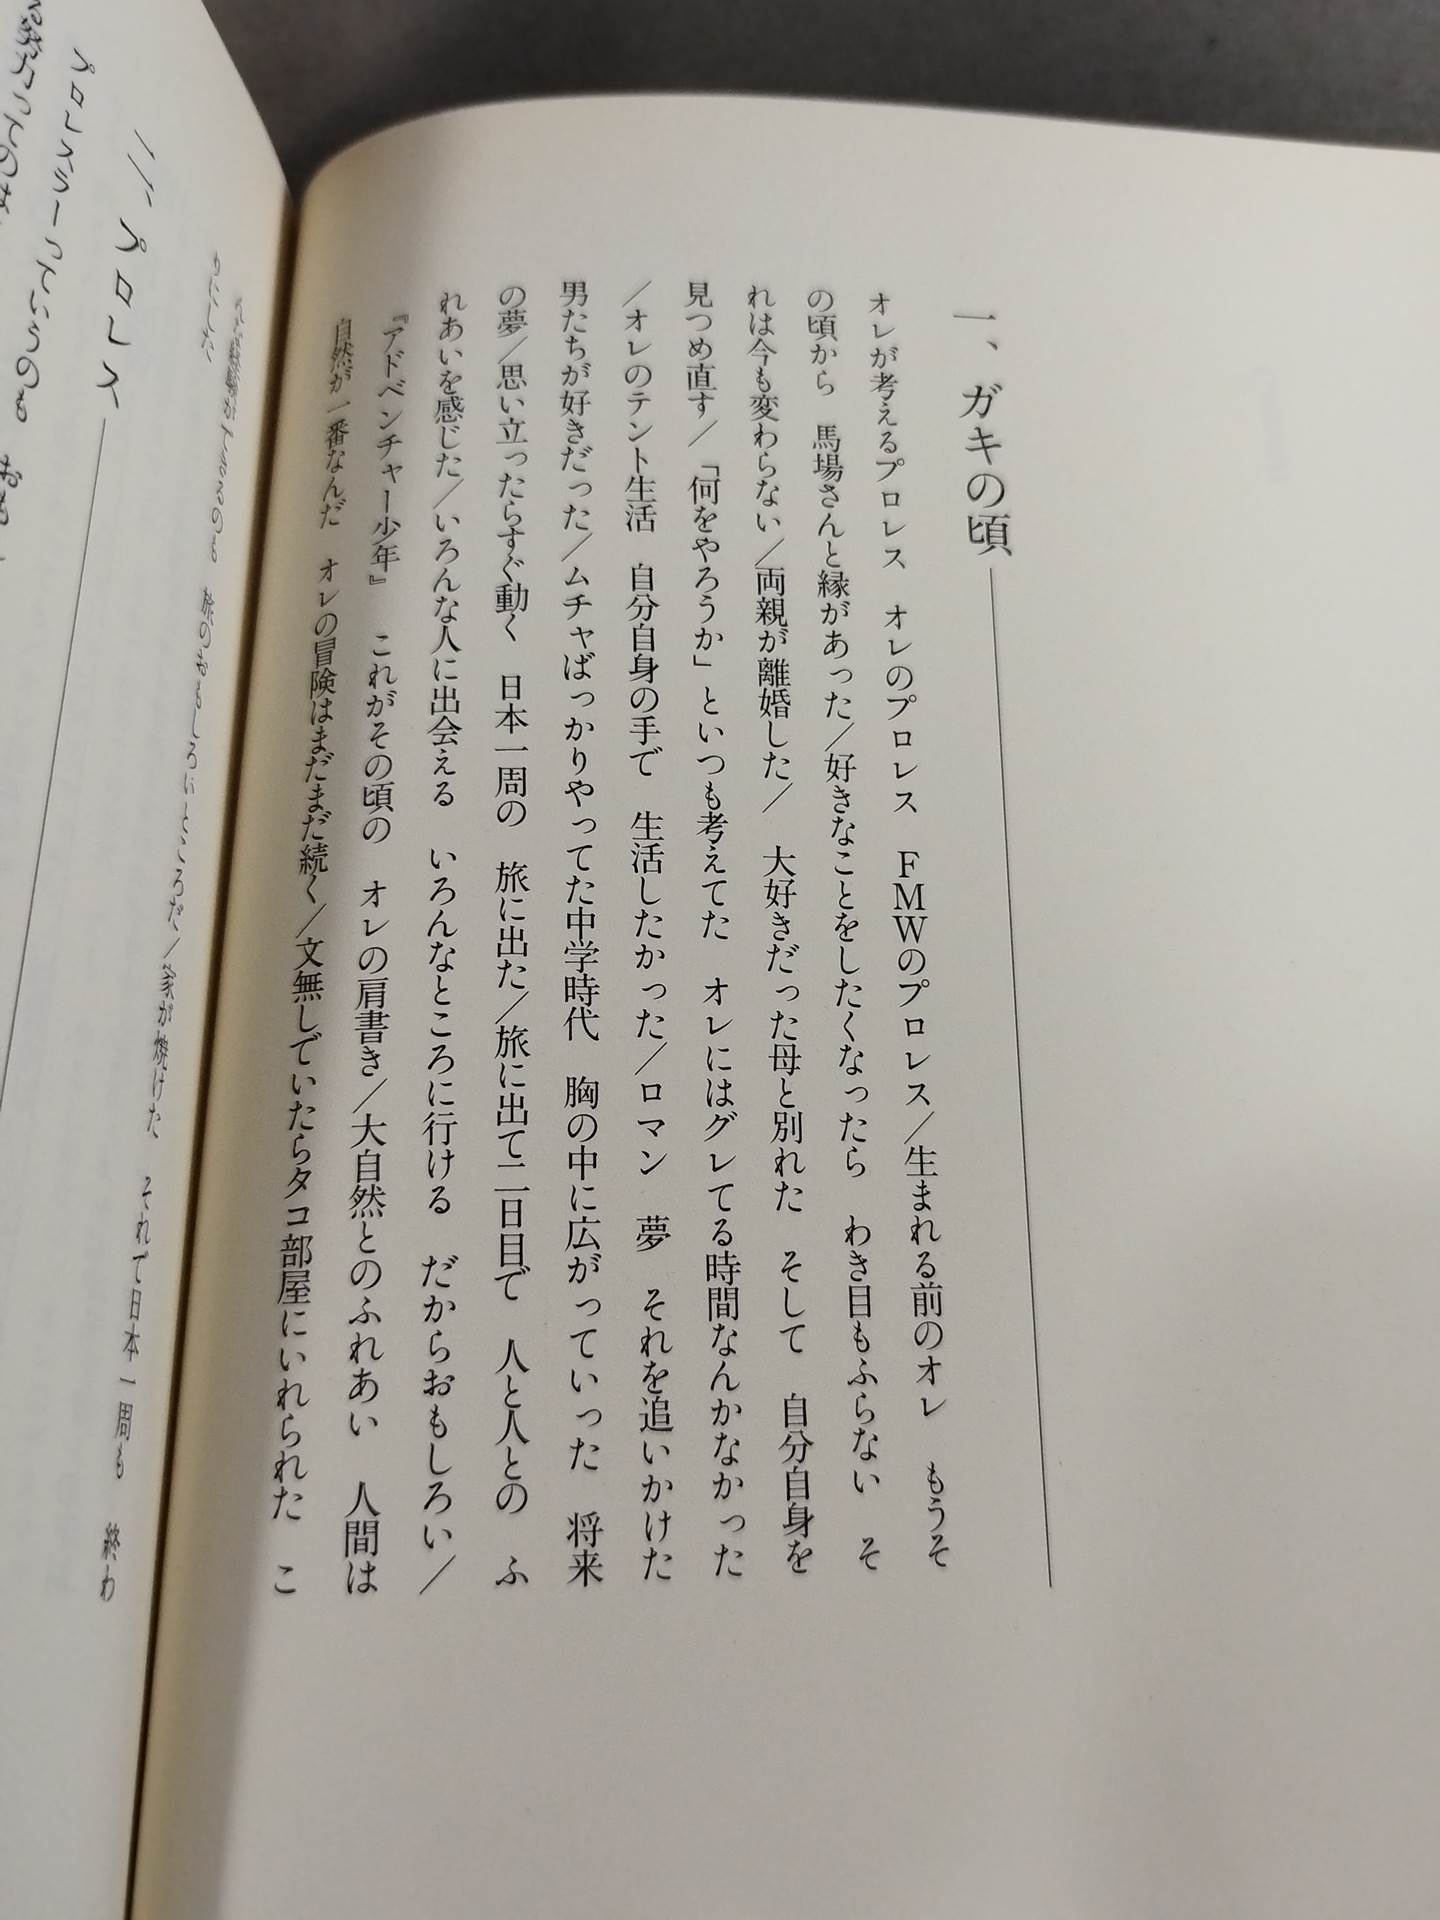 一、ガキの頃
オレが考えるプロレス　オレのプロレス　FMWのプロレス／生まれる前のオレ　もうそ
の頃から　馬場さんと縁があった／好きなことをしたくなったら　わき目もふらない　そ
れは今も変わらない／両親が離婚した／　大好きだった母と別れた　そして　自分自身を
見つめ直す／「何をやろうか」といつも考えてた　オレにはグレてる時間なんかなかった
／オレのテント生活　自分自身の手で　生活したかった／ロマン　夢　それを追いかけた
男たちが好きだった／ムチャばっかりやってた中学時代　胸の中に広がっていった　将来
の夢／思い立ったらすぐ動く　日本一周の　旅に出た／旅に出て二日目で　人と人との　ふ
れあいを感じた／いろんな人に出会える　いろんなところに行ける　だからおもしろい／
『アドベンチャー少年』　これがその頃の　オレの肩書き／大自然とのふれあい　人間は
自然が一番なんだ　オレの冒険はまだまだ続く／文無しでいたらタコ部屋にいれられた　こ
んな経験ができるのも　旅のおもしろいところだ／家が焼けた　それで日本一周も　終わ
りにした
二、プロレス
プロレスラーっていうのも　おも
努力ってのは